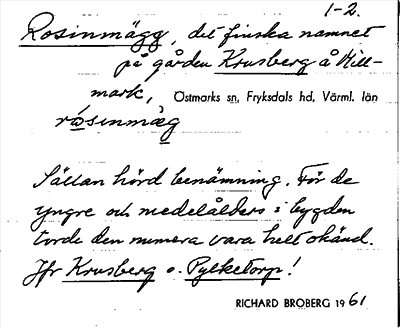 1-2.
Rosinmägg, det finska namnet
på gården Krusberg å Kill-
mark, Östmarks sn, Fryksdals hd, Värml. län
rásinmæg
Sällan hörd benämning. För de
yngre och medelålders i bygden
torde den numera vara helt okänd.
Jfr Krusberg o. Pylketorp!
RICHARD BROBERG 1961